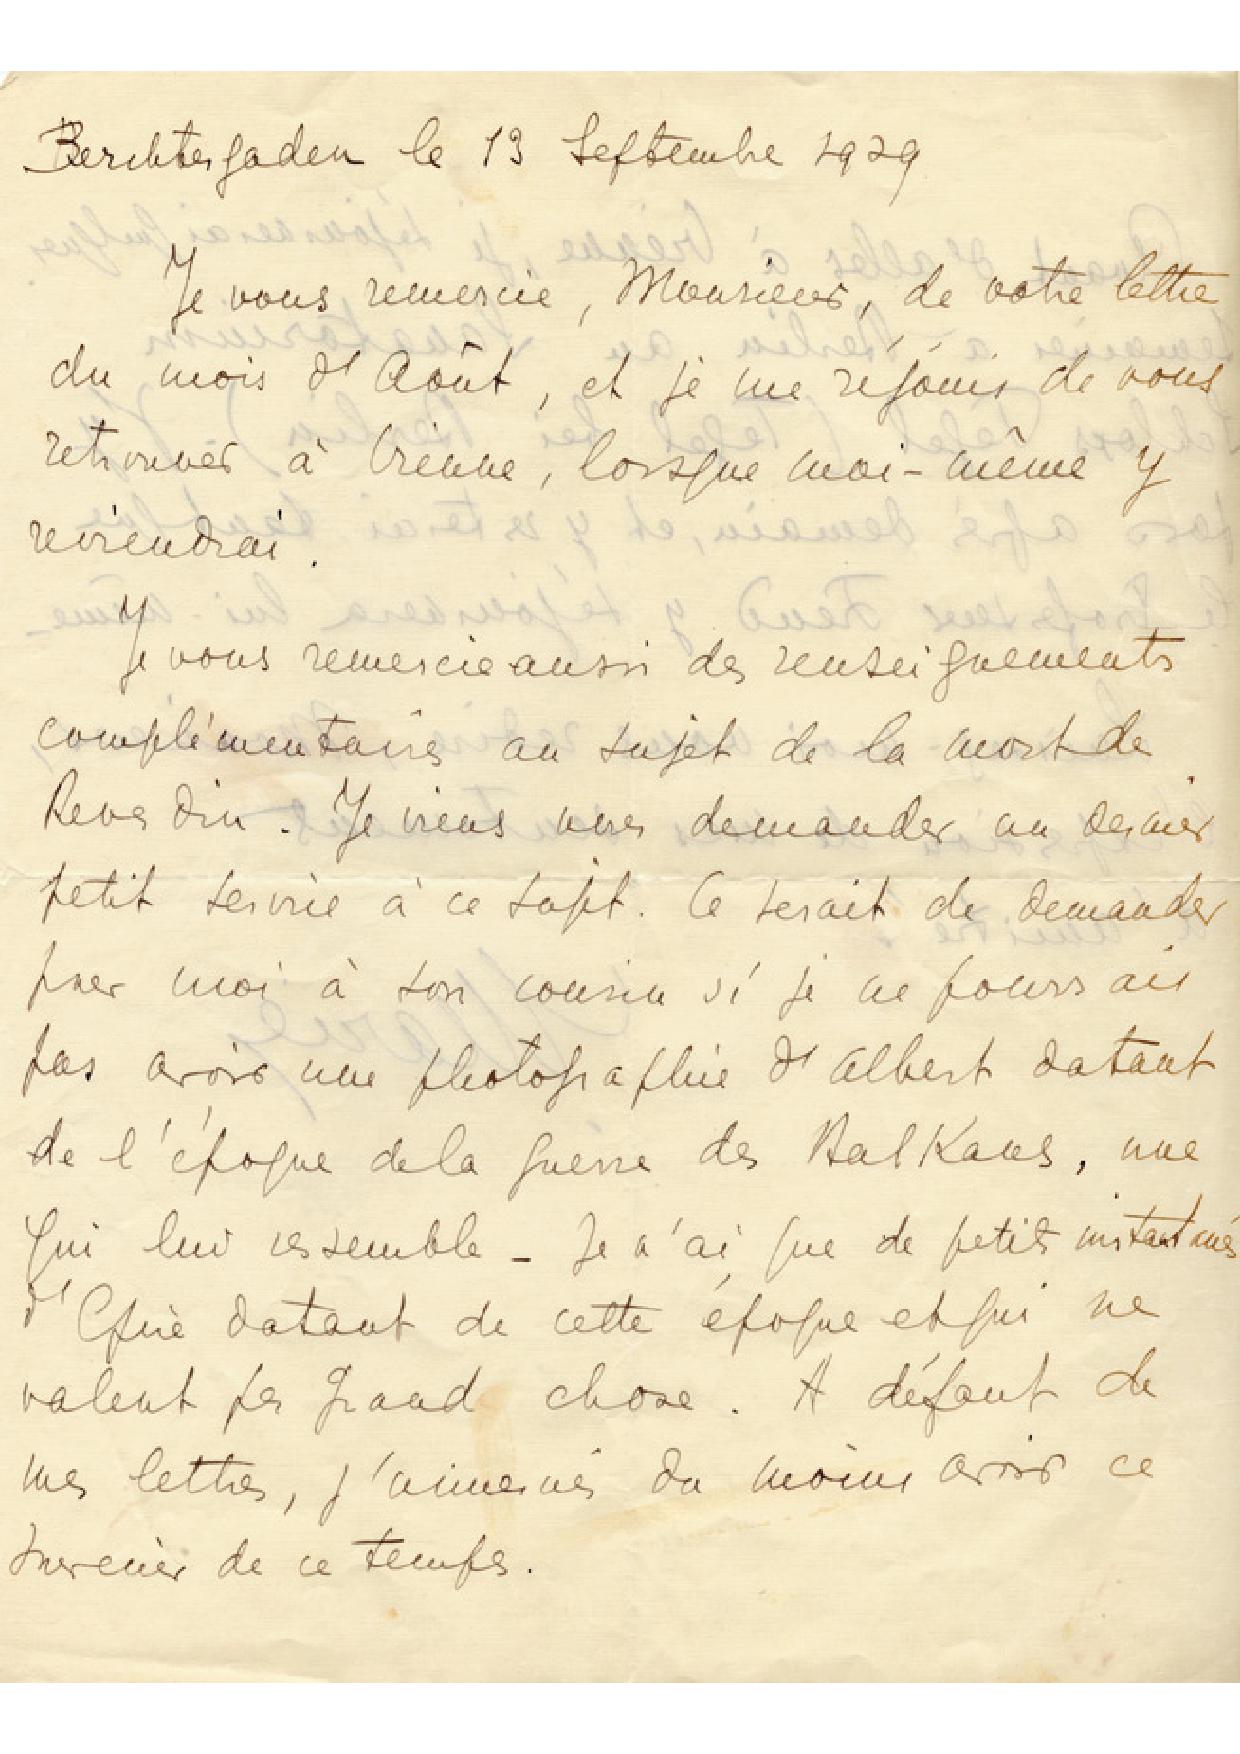 Berchtesgaden le 13 Septembre 1929
Je vous remercie, Monsieur, de votre lettre
du mois d'Août, et je me réjouis de vous
retrouver à Vienne, lorsque moi-même y
reviendrai.
Je vous remercie aussi des renseignements
complémentaires au sujet de la mort de
Reverdin. Je viens vous demander un dernier
petit service à ce sujet. Ce serait de demander
pour moi à son cousin si je ne pourrais
pas avoir une photographie d'Albert datant
de l'époque de la guerre des Balkans, une
qui lui ressemble - Je n'ai que de petits instantanés
d'Epire datant de cette époque et qui ne
valent pas grand chose. A défaut de
mes lettres, j'aimerais du moins avoir ce
souvenir de ce temps.